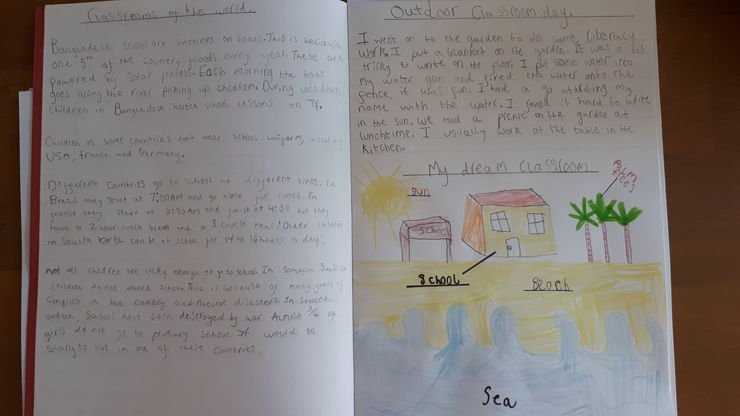 Classrooms of the world.
Bangladeshi are sometimes on boats. This is because
one 5th of the country floods every year. These are
powered by solar panels. Each morning the boat
goes along the river picking up children. During lockdown,
children in Bangladesh watch whole lessons on TV.
Children in some countries don't wear school uniform, including
USA, france and Germany.
Different countries go to school at different times. In
Brazil they start at 7:00AM and go home for lunch. In
france they start at 8:30AM and finish at 4:30 but they
have a 2 hour lunch break and a 3 course meal! Older children
in South Korea can be at school for 14 to 16 hours a day!
not all children are lucky enough to go to school. In Somalia 3 million
children do not attend school. This is because of many years of
conflict in the country and natural disasters. In South
Sudan, have been destroyed by war. Almost 3/4 of
girls do not go to primary school. It would be
scary to live in one of these countries.
Outdoor Classroom day.
I went on to the garden to do some literacy
work. I put a blanket on the garden. It was a bit
tricky to write on the floor. I put some water into
my water gun and fired the water onto the
fence, it was fun. I had a go at writing my
name with the water. I found it hard to write
in the sun. We had a picnic on the garden at
lunchtime. I usually work at the table in the
kitchen.
My dream classroom
sun
palm trees
school
school
Beach
Sea